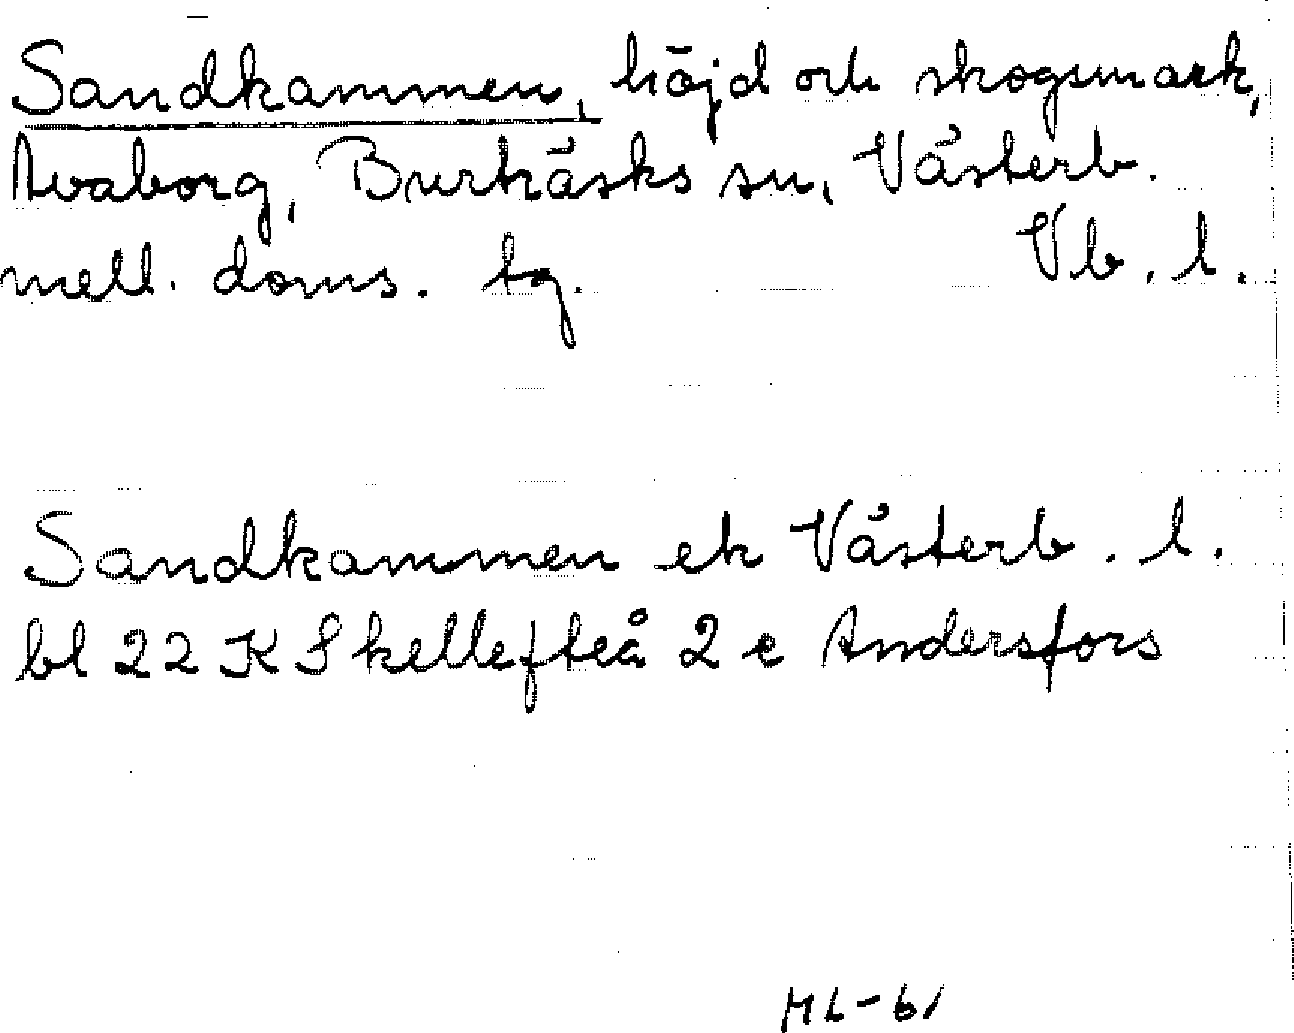 Sandkammen, höjd och skogsmark,
Avaborg, Burträsks sn, Västerb.
mell. doms. tg. Vb. l.
Sandkammen ek Västerb. l.
bl 22 K Skellefteå 2 e Andersfors